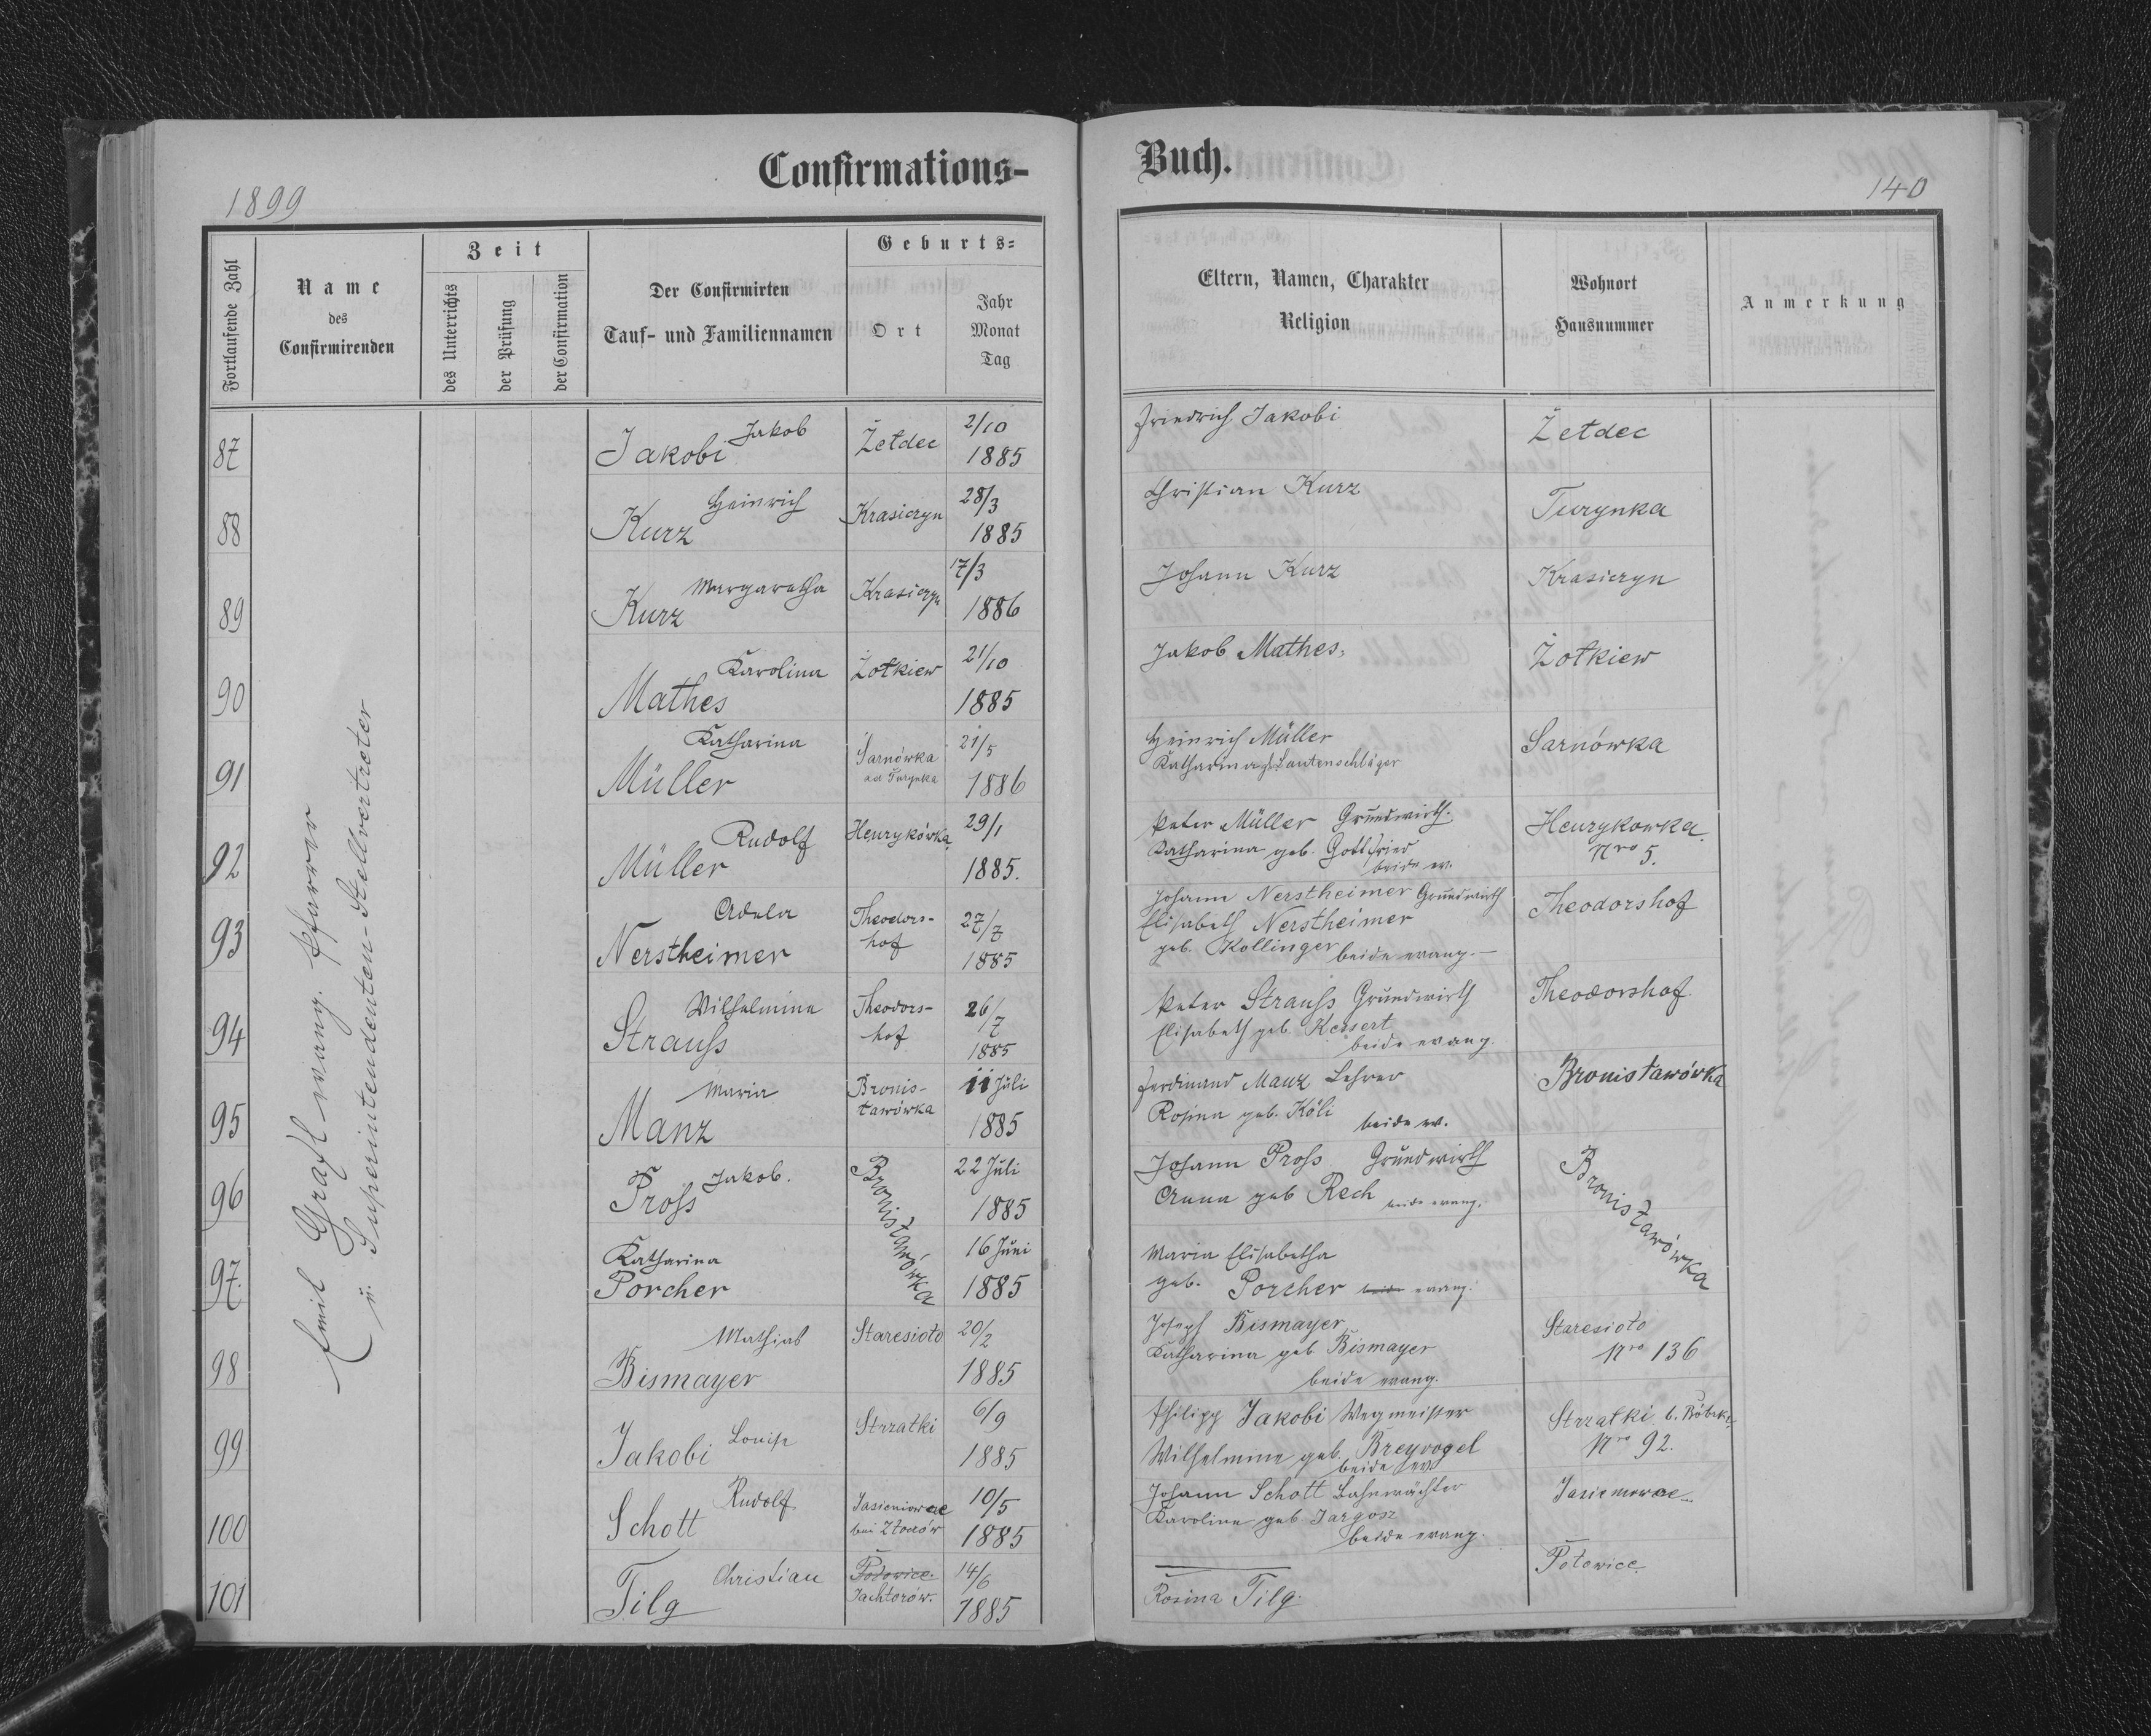 Confirmations-
Buch.
1899
140
Fortlaufende Zahl
Name
des
Confirmirenden
Zeit
des Unterrichts
der Prüfung
der Confirmation
Der Confirmirten
Tauf- und Familiennamen
Geburts-
Ort
Jahr
Monat
Tag
Eltern, Namen, Charakter
Religion
Wohnort
Hausnummer
Anmerkung
Emil Grafl evang. Pfarrer
u. Superintendenten-Stellvertreter
87
Jakob
Jakobi
Żełdec
2/10
1885
Friedrich Jakobi
Żełdec
88
Heinrich
Kurz
Krasiczyn
28/3
1885
Christian Kurz
Turynka
89
Margaretha
Kurz
Krasiczyn
17/3
1886
Johann Kurz
Krasiczyn
90
Karolina
Mathes
Żółkiew
21/10
1885
Jakob Mathes
Żółkiew
91
Katharina
Müller
Sarnówka
ad Turynka
21/5
1886
Heinrich Müller
Katharina g. Lautenschläger
Sarnówka
92
Rudolf
Müller
Henrykówka
29/1
1885.
Peter Müller Grundwirth.
Katharina geb. Gottfried
beide ev.
Henrykowka
Nro 5.
93
Adela
Nerstheimer
Theodors-
hof
27/7
1885
Johann Nerstheimer Grundwirth
Elisabeth Nerstheimer
geb. Kollinger beide evang.—
Theodorshof
94
Wilhelmina
Strauß
Theodors-
hof
26/7
1885
Peter Strauß Grundwirth
Elisabeth geb. Kessert
beide evang.
Theodorshof.
95
Maria
Manz
Bronis-
ławówka
11 Juli
1885
Ferdinand Manz Lehrer
Rosina geb. Köli
beide ev.
Bronisławówka
96
Jakob.
Proß
Bronisławówka
22 Juli
1885
Johann Proß Grundwirth
Anna geb Rech beide evang.
Bronisławówka
97.
Katharina
Porcher
16 Juni
1885
Maria Elisabetha
geb. Porcher beide evang.
98
Mathias
Bismayer
Staresioło
20/2
1885
Joseph Bismayer
Katharina geb Bismayer
beide evang.
Staresioło
Nro 136
99
Louise
Jakobi
Strzałki
6/9
1885
Philipp Jakobi Wegmeister
Wilhelmine geb. Breyvogel
beide ev.
Strzałki b. Bóbrka
Nro 92.
100
Rudolf
Schott
Jasieniowce
bei Złoczów
10/5
1885
Johann Schott Bahnwächter
Karoline geb. Jargosz
beide evang.
101
Christian
Tilg
Jachtorów.
14/6
1885
Rosina Tilg.
Połowice